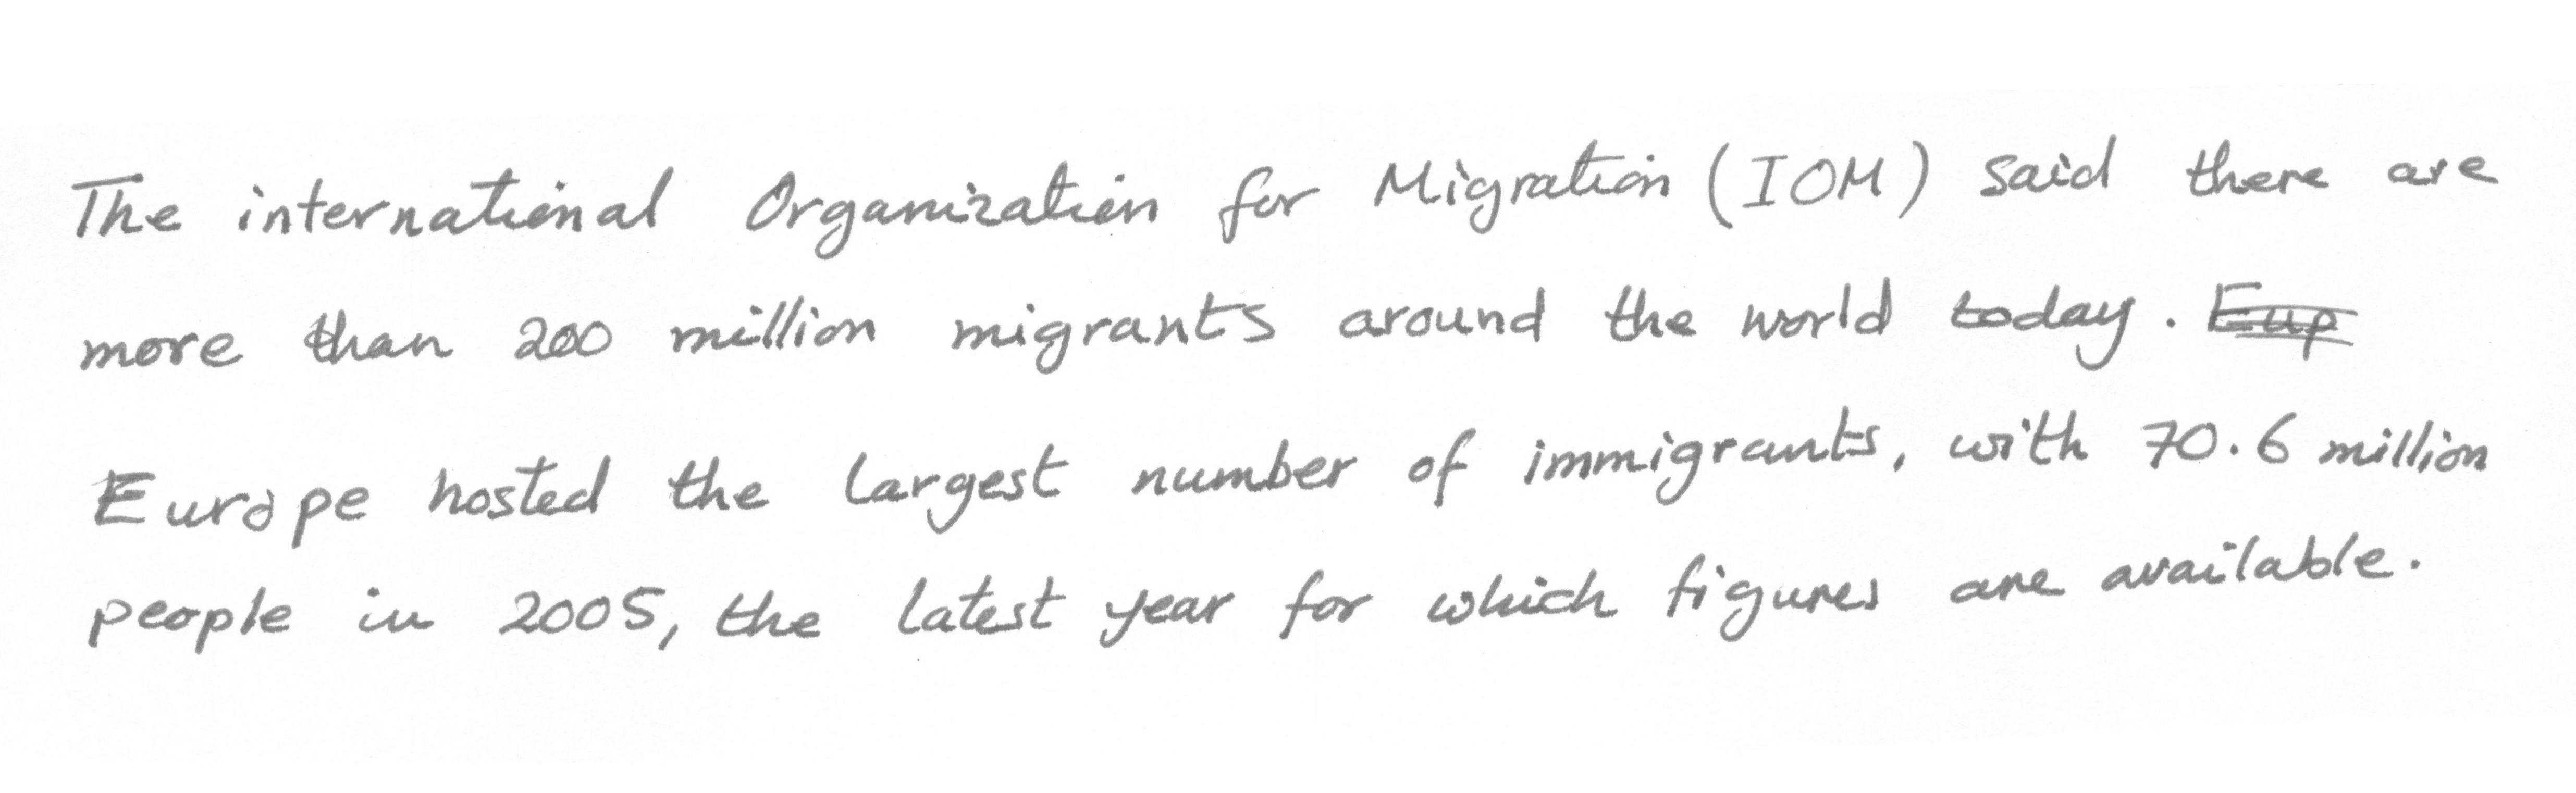 The international Organization for Migration (IOM) said there are
more than 200 million migrants around the world today. Eup
Europe hosted the largest number of immigrants, with 70.6 million
people in 2005, the latest year for which figures are available.